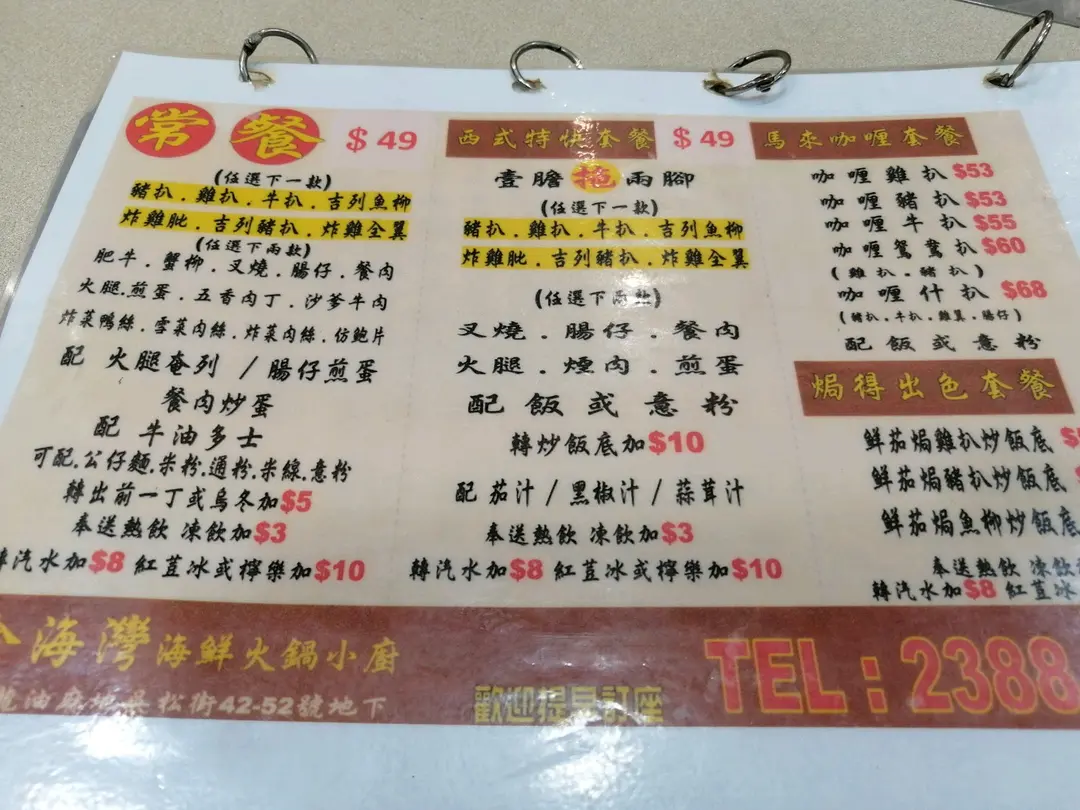 常餐 $49
(任選下一款)
豬扒．雞扒．牛扒．吉列魚柳
炸雞肶．吉列豬扒．炸雞全翼
(任選下兩款)
肥牛．蟹柳．叉燒．腸仔．餐肉
火腿．煎蛋．五香肉丁．沙爹牛肉
炸菜鴨絲．雪菜肉絲．炸菜肉絲．仿鮑片
配 火腿奄列 / 腸仔煎蛋
餐肉炒蛋
配 牛油多士
可配.公仔麵.米粉.通粉.米線.意粉
轉出前一丁或烏冬加$5
奉送熱飲 凍飲加$3
轉汽水加$8 紅荳冰或檸樂加$10
西式特快套餐 $49
壹膽拖兩腳
(任選下一款)
豬扒．雞扒．牛扒．吉列魚柳
炸雞肶．吉列豬扒．炸雞全翼
(任選下兩款)
叉燒．腸仔．餐肉
火腿．煙肉．煎蛋
配飯或意粉
轉炒飯底加$10
配 茄汁 / 黑椒汁 / 蒜茸汁
奉送熱飲 凍飲加$3
轉汽水加$8 紅荳冰或檸樂加$10
馬來咖喱套餐
咖喱雞扒 $53
咖喱豬扒 $53
咖喱牛扒 $55
咖喱鴛鴦扒 $60
(雞扒．豬扒)
咖喱什扒 $68
(豬扒．牛扒．雞翼．腸仔)
配飯或意粉
焗得出色套餐
鮮茄焗雞扒炒飯底
鮮茄焗豬扒炒飯底
鮮茄焗魚柳炒飯底
奉送熱飲 凍飲
轉汽水加$8 紅荳冰
海灣海鮮火鍋小廚
油麻地吳松街42-52號地下
歡迎提早訂座
TEL：2388